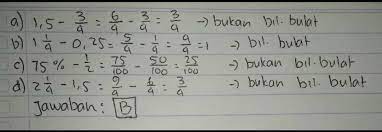 a) 1,5 - 3/4 = 6/4 - 3/4 = 3/4 → bukan bil. bulat
b) 1 1/4 - 0,25 = 5/4 - 1/4 = 4/4 = 1 → bil. bulat
c) 75% - 1/2 = 75/100 - 50/100 = 25/100 → bukan bil. bulat
d) 2 1/4 - 1,5 = 9/4 - 6/4 = 3/4 → bukan bil. bulat
Jawaban : B